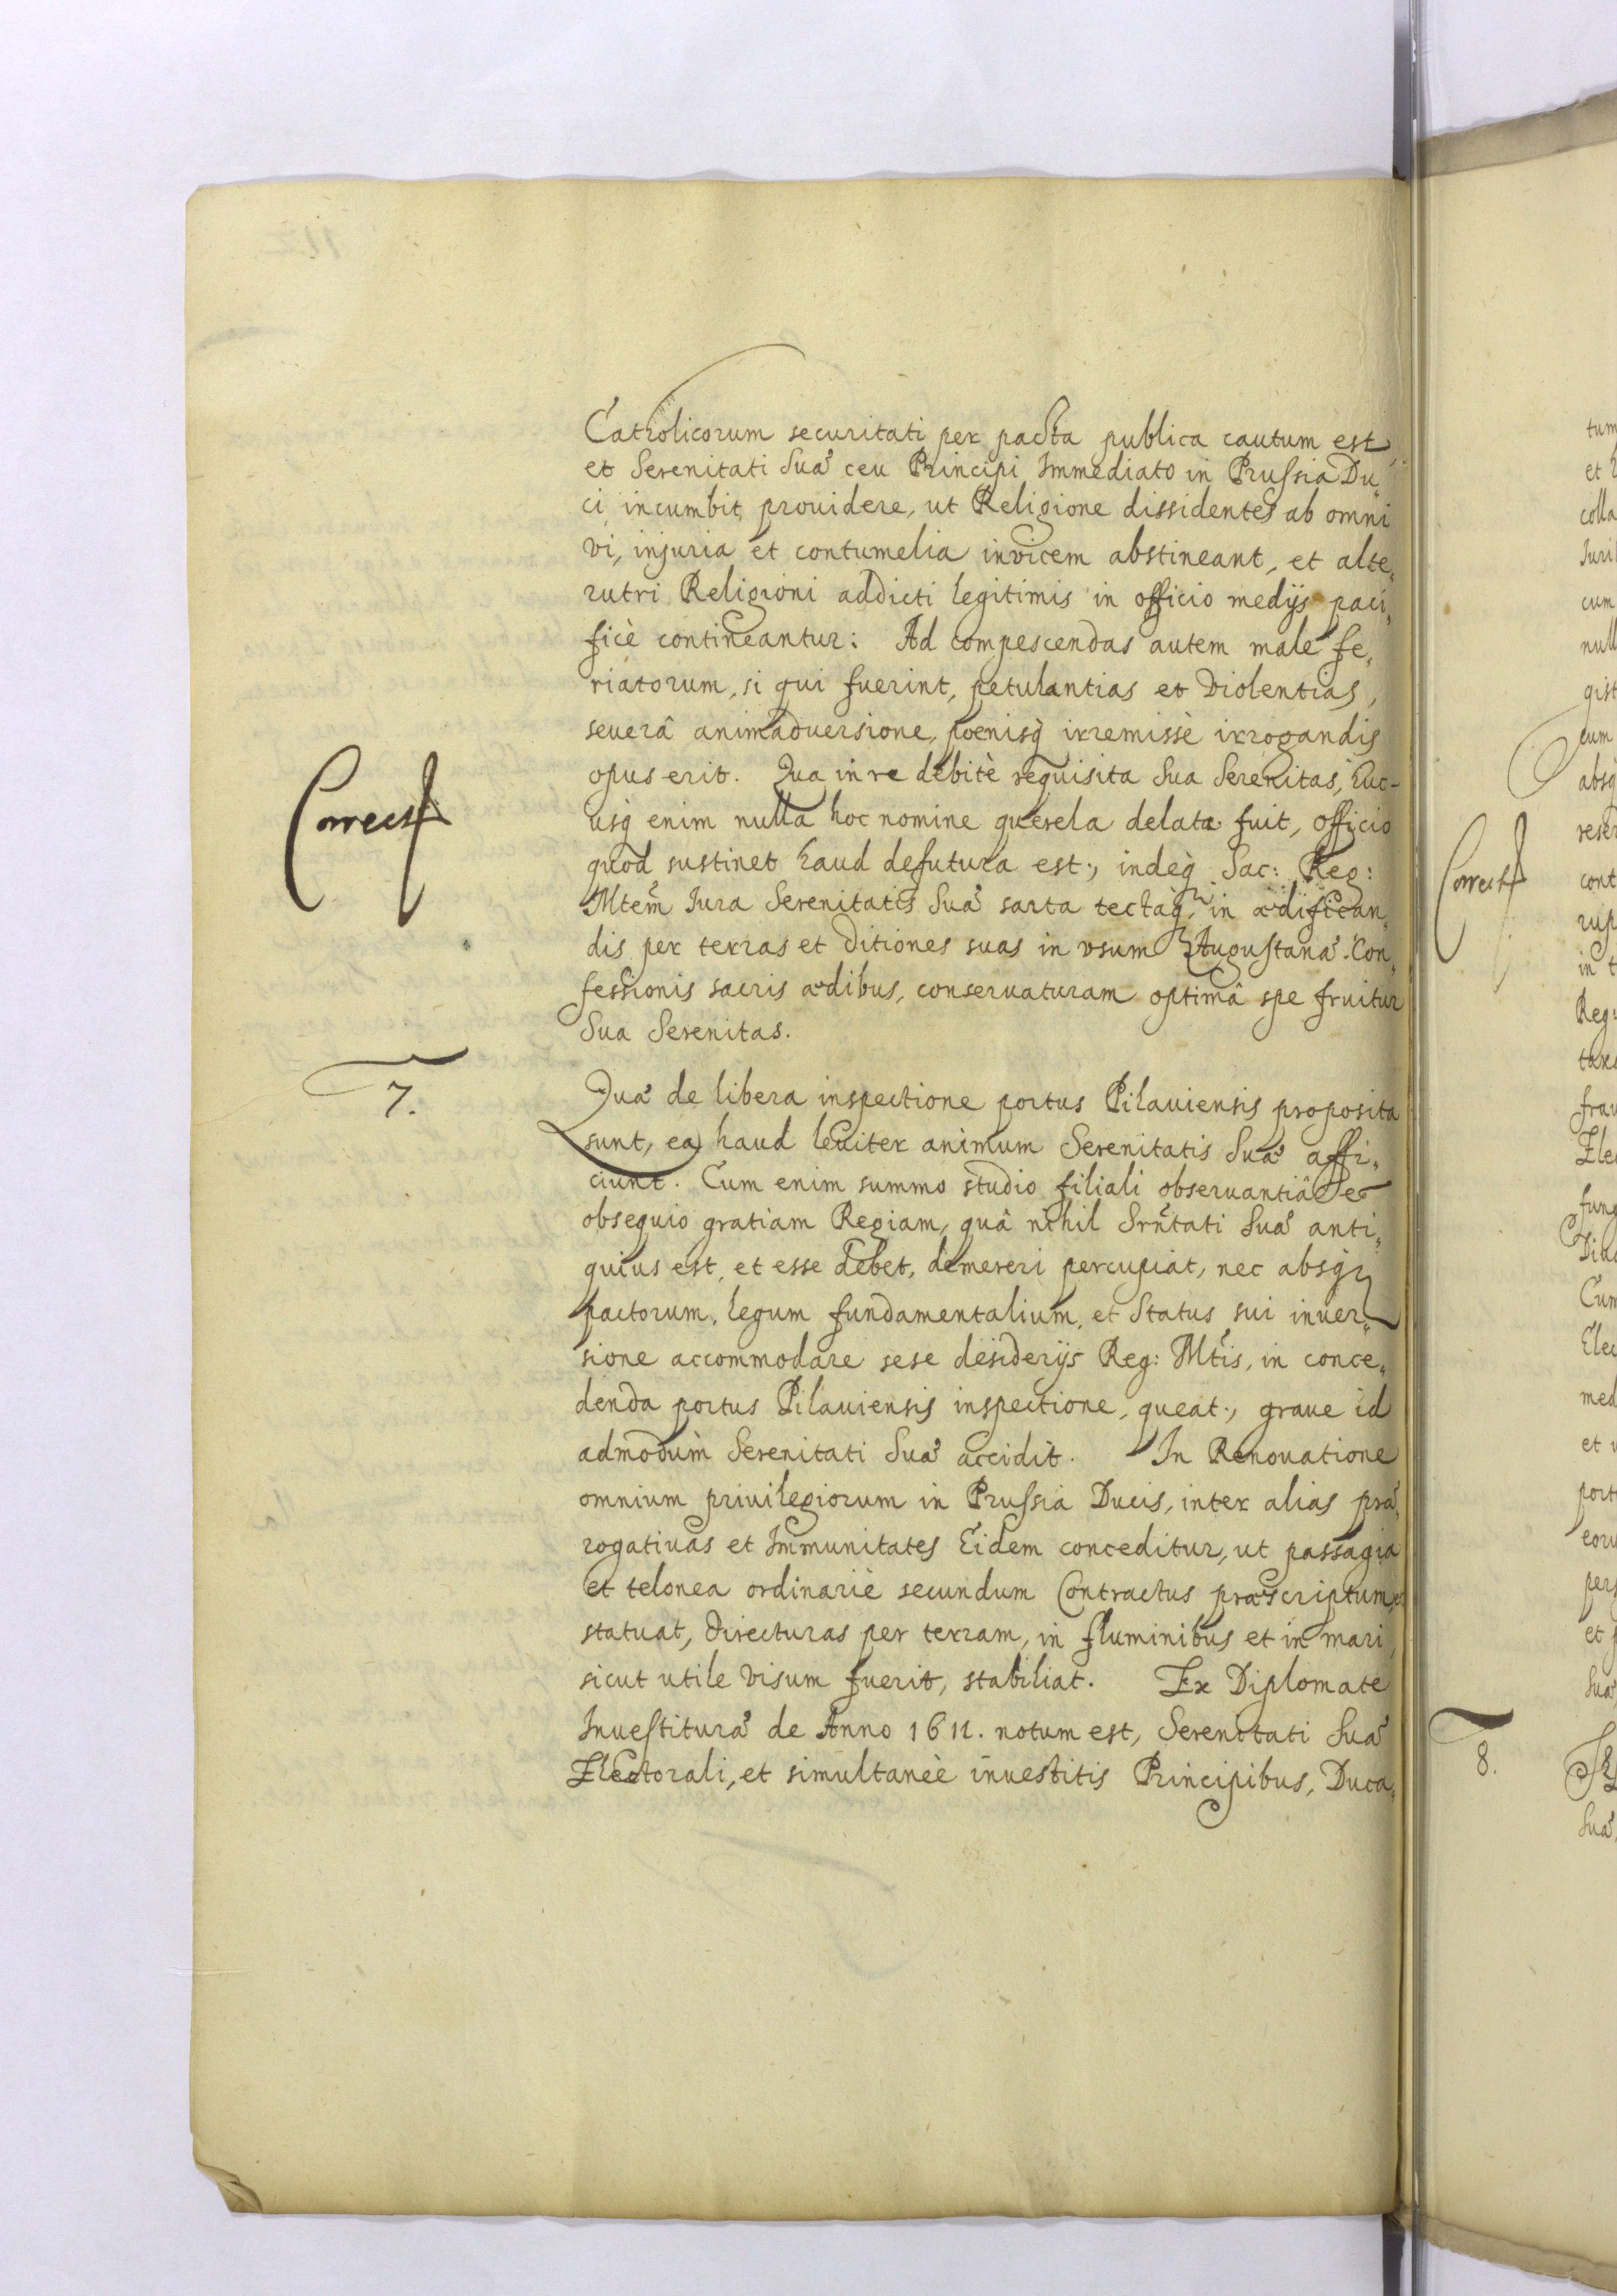 Catholicorum securitati per pacta publica cautum est,
et Serenitati Suæ ceu Principi Immediato in Prussia Du„
ci incumbit prouidere, ut Religione dissidentes ab omni
vi, injuria et contumelia invicem abstineant, et alte„
rutri Religioni addicti legitimis in officio medijs paci„
ficè contineantur: Ad compescendas autem male fe„
riatorum, si qui fuerint, petulantias et violentias,
seuerâ animaduersione, poenisq́ irremissè irrogandis
opus erit. Qua in re debitè requisita Sua Serenitas, huc-
usq́ enim nulla hoc nomine querela delata fuit, officio
quod sustinet haud defutura est; indeq́ Sac: Reg:
Mtem̃ Iura Serenitatis Suæ sarta tectaq́, in ædifican„
dis per terras et ditiones suas in vsum Augustanæ Con„
fessionis sacris ædibus, conseruaturam optimâ spe fruitur
Sua Serenitas.
Correct
7.
Quæ de libera inspectione portus Pilauiensis proposita
sunt, ea haud leuiter animum Serenitatis Suæ affi„
ciunt. Cum enim summo studio filiali obseruantiâ et
obsequio gratiam Regiam, quâ nihil Srñtati Suæ anti„
quius est, et esse debet, demereri percupiat, nec absq́
pactorum, legum fundamentalium, et Status sui inuer„
sione accommodare sese desiderijs Reg: Mt̃is, in conce„
denda portus Pilauiensis inspectione, queat; graue id
admodùm Serenitati Suæ accidit. In Renouatione
omnium priuilegiorum in Prussia Ducis, inter alias præ„
rogatiuas et Immunitates Eidem conceditur, ut passagia
et telonea ordinariè secundum Contractus præscriptum
statuat, directuras per terram, in fluminibus et in mari,
sicut utile visum fuerit, stabiliat. Ex Diplomate
Inuestituræ de Anno 1611. notum est, Serenitati Suæ
Electorali, et simultaneè inuestitis Principibus, Duca„
Correct
8.